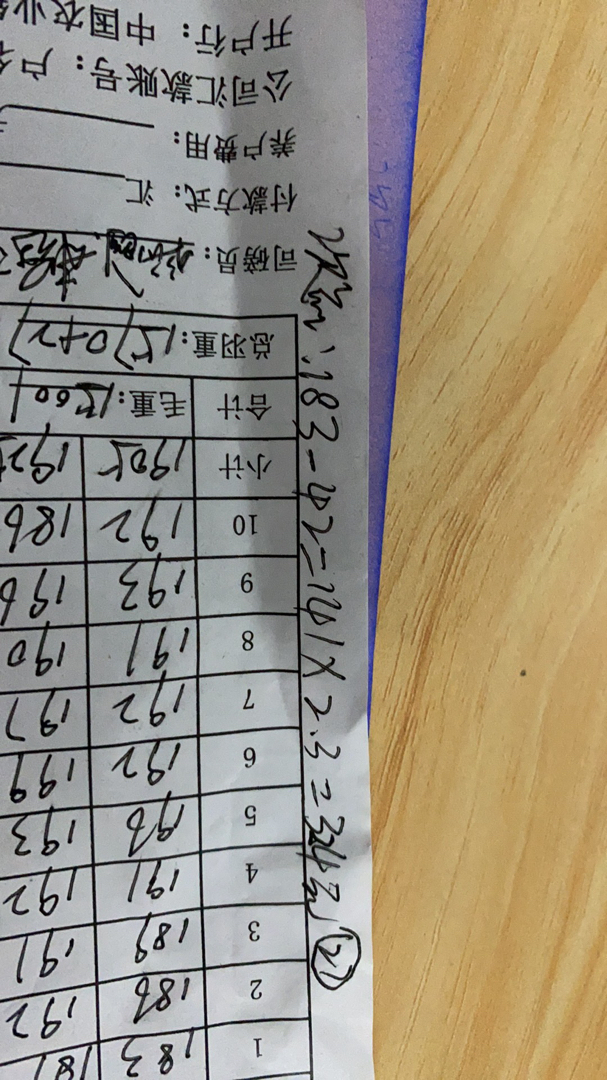 1 183 187
2 186 192
3 189 191
4 191 192
5 196 193
6 192 199
7 192 197
8 191 190
9 193 196
10 192 186
小计 1905 192
合计 毛重：
总羽重：
司磅员：
付款方式：汇
养户费用：
公司汇款账号：户名
开户行：中国农业
183-42=141×2.3=324